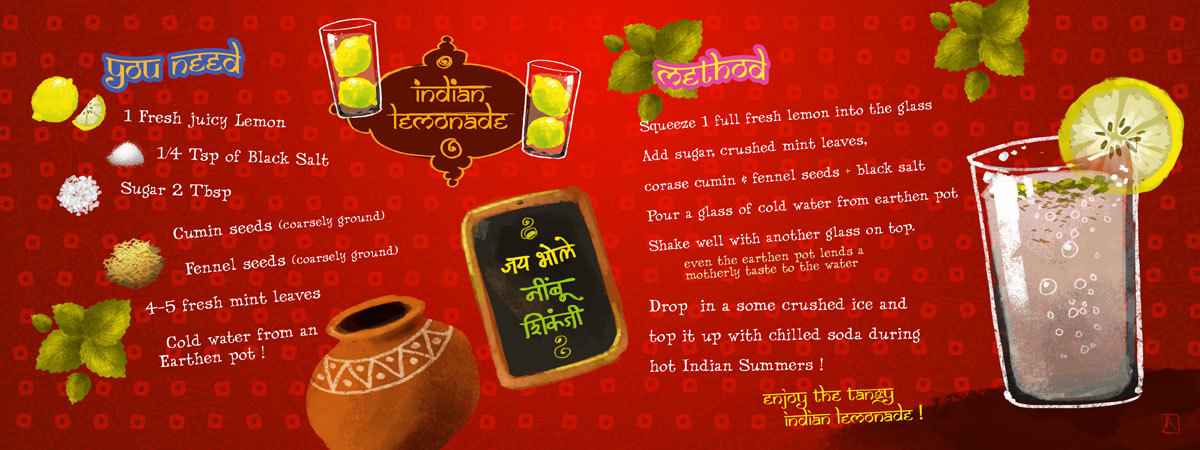 you need
1 Fresh juicy Lemon
1/4 Tsp of Black Salt
Sugar 2 Tbsp
Cumin seeds (coarsely ground)
Fennel seeds (coarsely ground)
4-5 fresh mint leaves
Cold water from an
Earthen pot !
indian
lemonade
जय भोले
नींबू
शिकंजी
method
Squeeze 1 full fresh lemon into the glass
Add sugar, crushed mint leaves,
corase cumin & fennel seeds + black salt
Pour a glass of cold water from earthen pot
Shake well with another glass on top.
even the earthen pot lends a
motherly taste to the water
Drop in a some crushed ice and
top it up with chilled soda during
hot Indian Summers !
enjoy the tangy
indian lemonade !